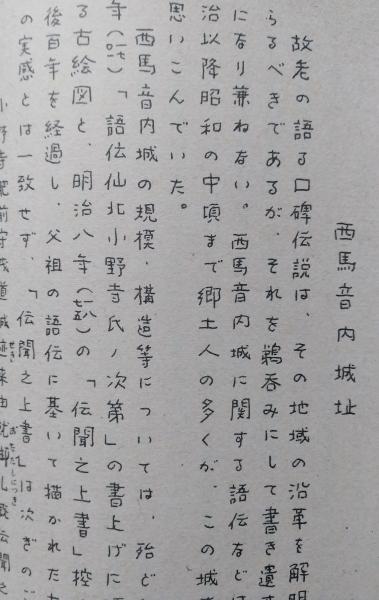 西馬音内城址
故老の語る口碑伝説は、その地域の沿革を解明
らるべきであるが、それを鵜呑みにして書き遺す
になり兼ねない。西馬音内城に関する語伝などは
治以降昭和の中頃まで郷土人の多くが、この城
思いこんでいた。
西馬音内城の規模、構造等については、殆ど
年「語伝仙北小野寺氏ノ次第」の書上げに
る古絵図と、明治八年(一八七五)の「伝聞之上書」控
後百年を経過し、父祖の語伝に基いて描かれた
の実感とは一致せず、「伝聞之上書」は次ぎのご
小野寺肥前守茂道城跡来由就御